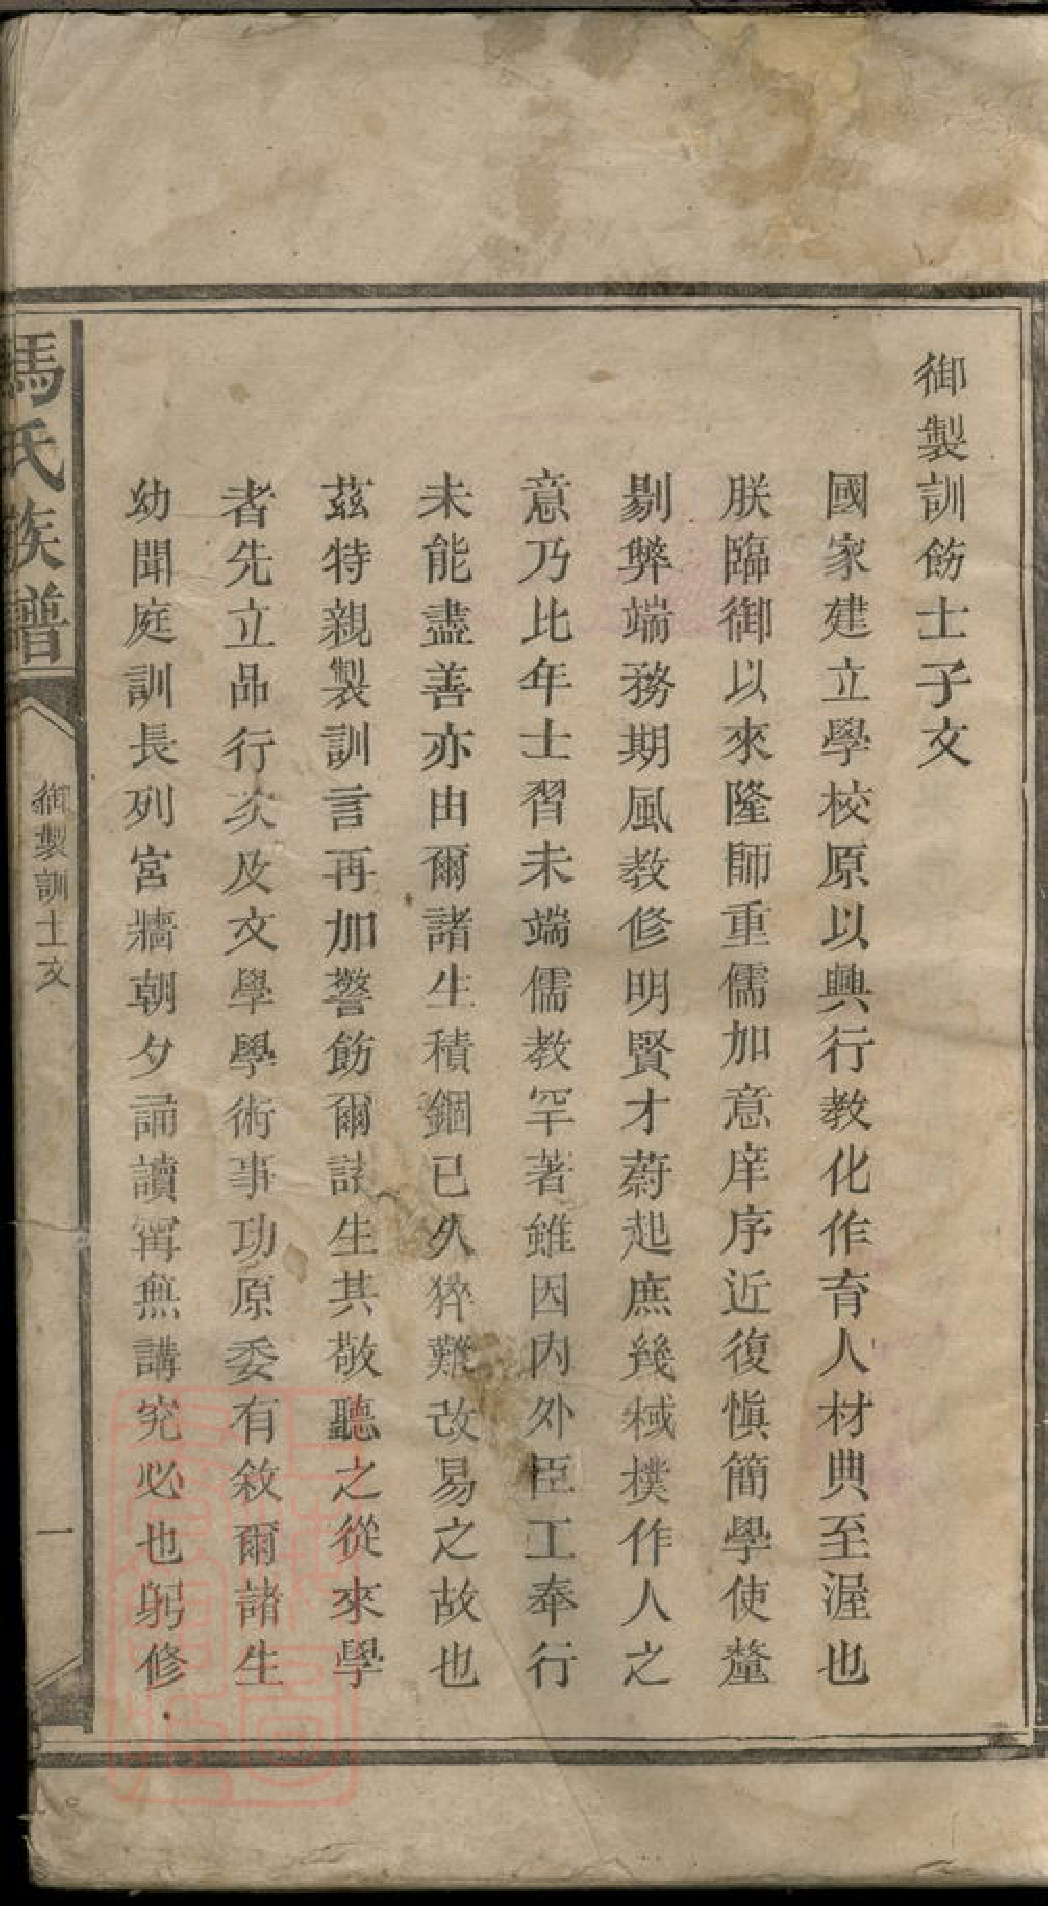 御製訓飭士子文
國家建立學校原以興行教化作育人材典至渥也
朕臨御以來隆師重儒加意庠序近復慎簡學使釐
剔弊端務期風教修明賢才蔚起庶幾棫樸作人之
意乃比年士習未端儒教罕著雖因内外臣工奉行
未能盡善亦由爾諸生積錮已久猝難改易之故也
茲特親製訓言再加警飭爾諸生其敬聽之從來學
者先立品行次及文學學術事功原委有敘爾諸生
幼聞庭訓長列宮牆朝夕誦讀寧無講究必也躬修
馮氏族譜
御製訓士文
一